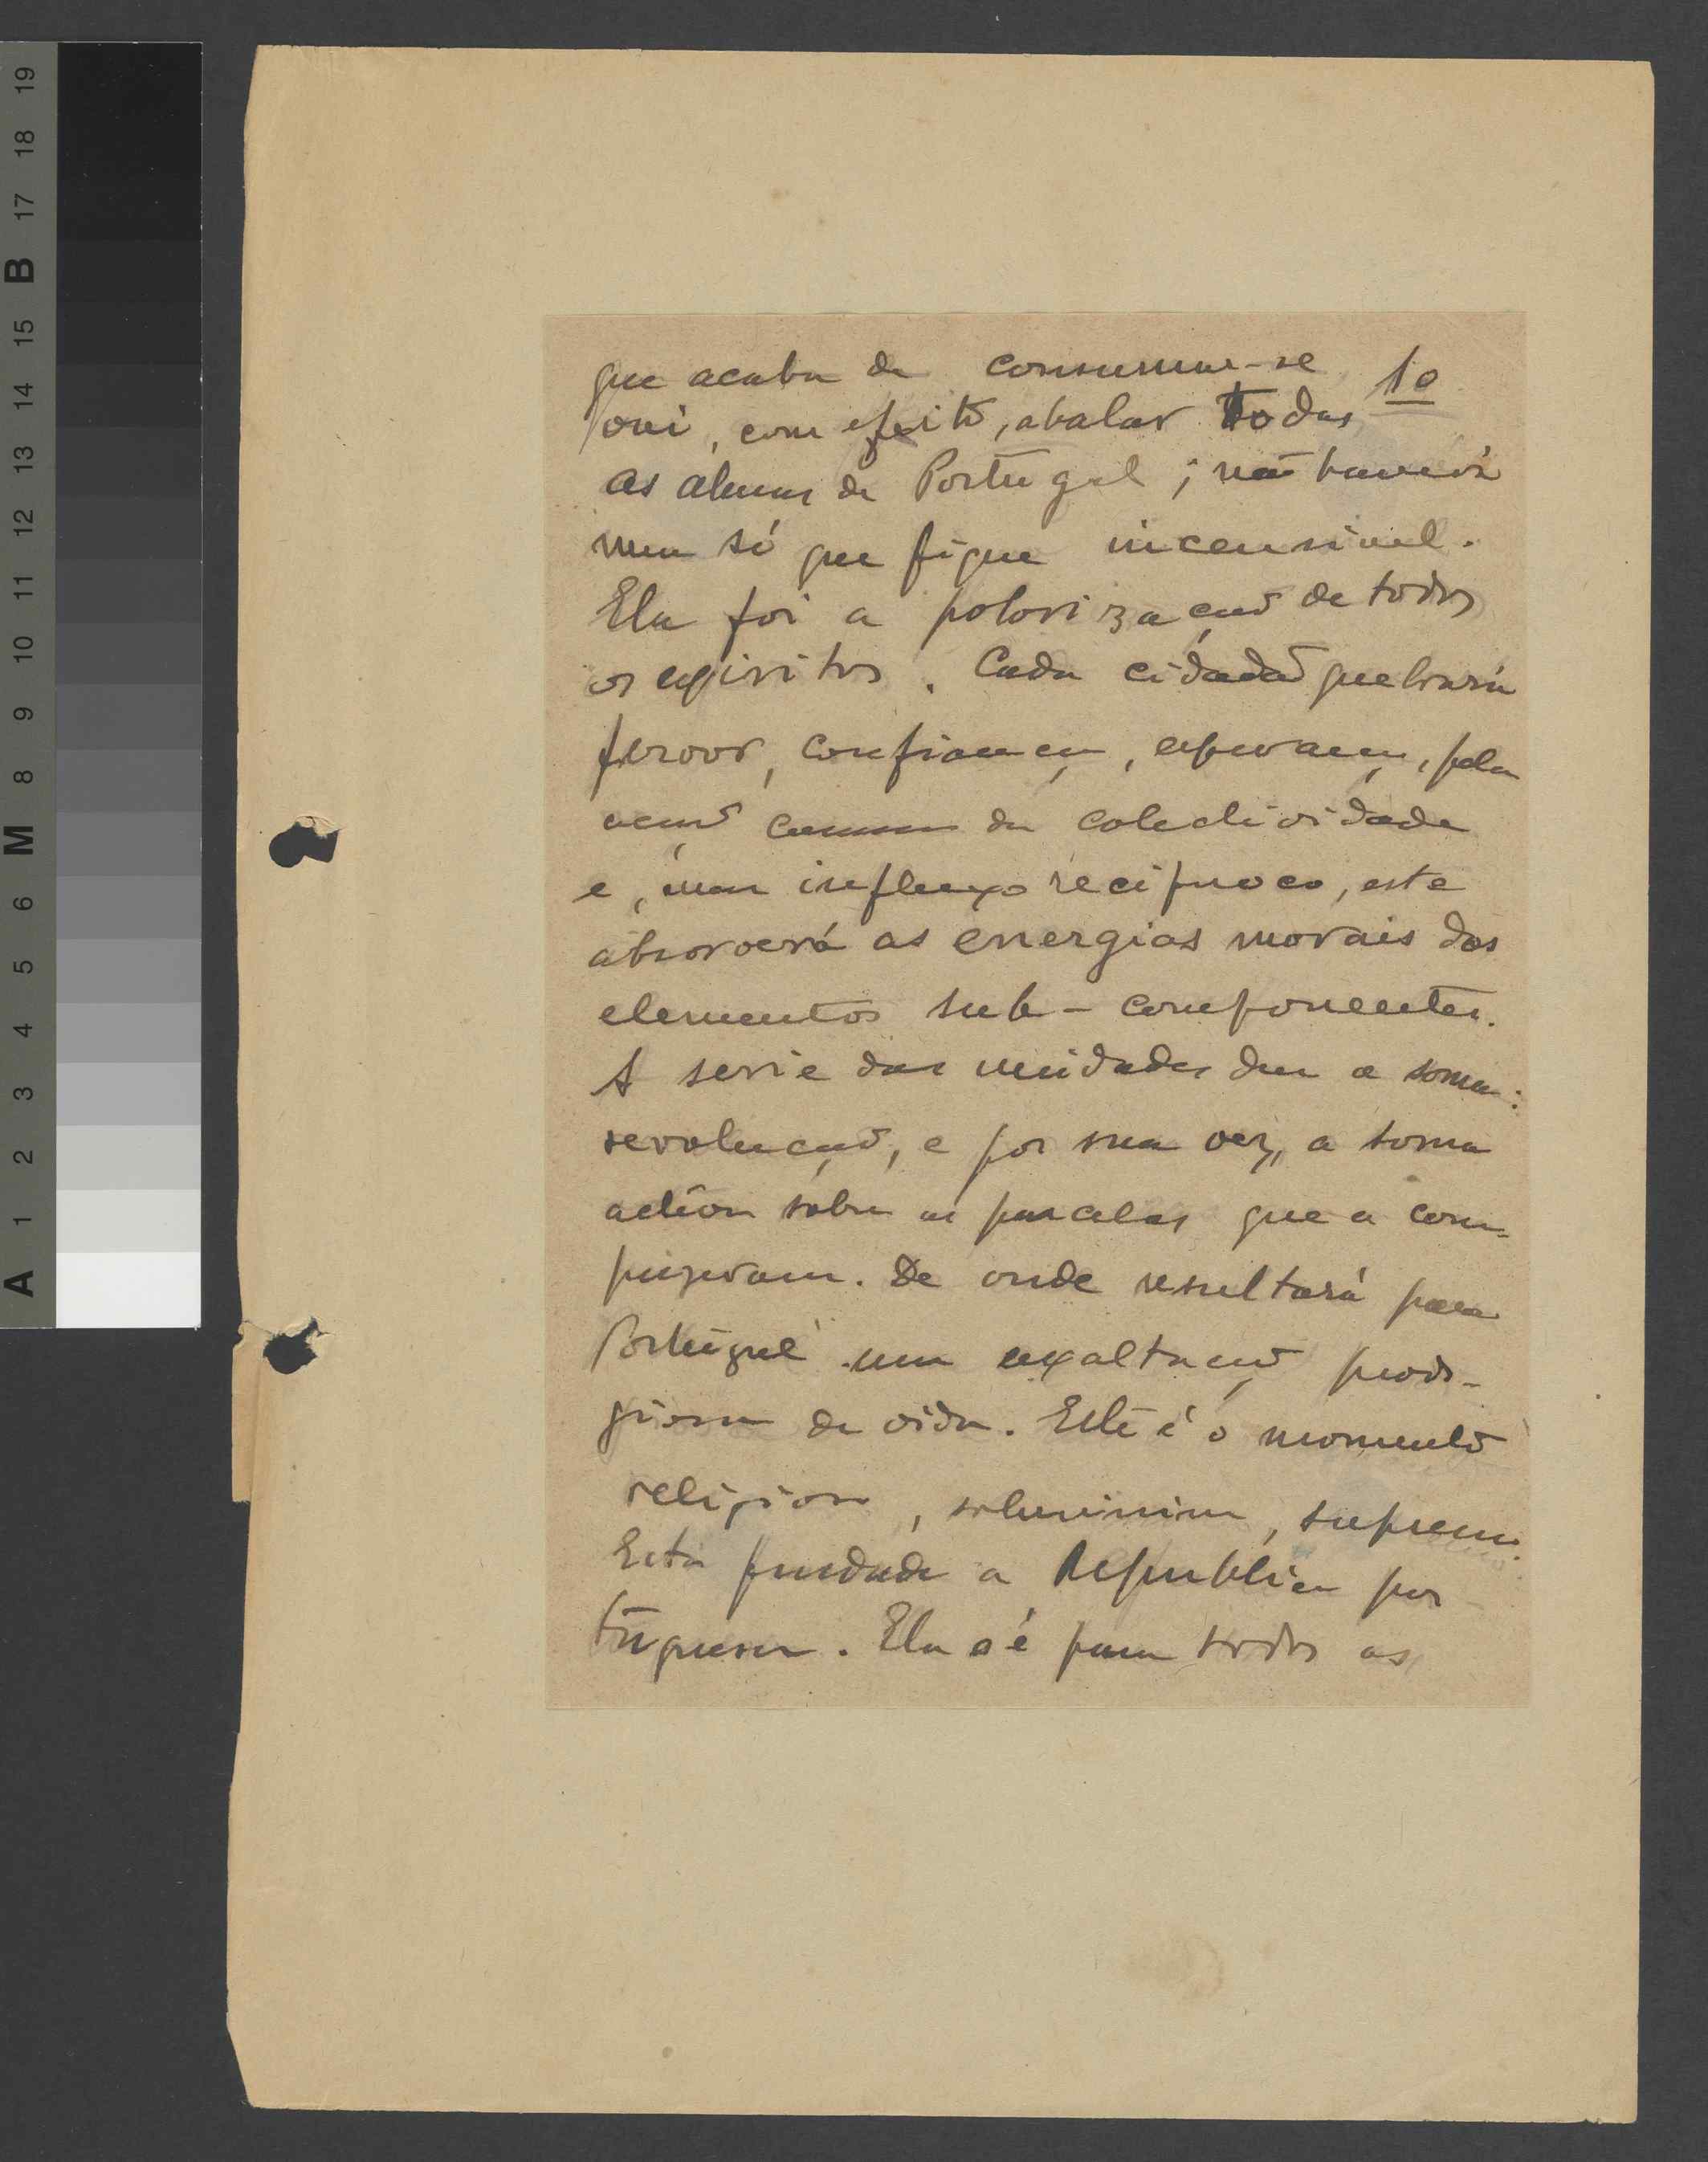 que acaba de consumar-se 10
vai, com efeito, abalar todas
as almas de Portugal; não haverá
uma só que fique incensivel.
Ela foi a polorização de todos
os espiritos. Cada cidadão quebrará
fervor, confiança, esperança, pela
acção comum da colectividade
e, num influxo reciproco, este
absorverá as energias morais dos
elementos sub-componentes.
A serie das unidades deu a soma:
revolução, e por sua vez, a soma
action sobre as parcelas que a com-
puzeram. De onde resultará para
Portugal uma exaltação prodi-
giosa de vida. Este é o momento
religioso, solenissimo, supremo.
Está fundada a Republica por-
tuguesa. Ela é para todos os